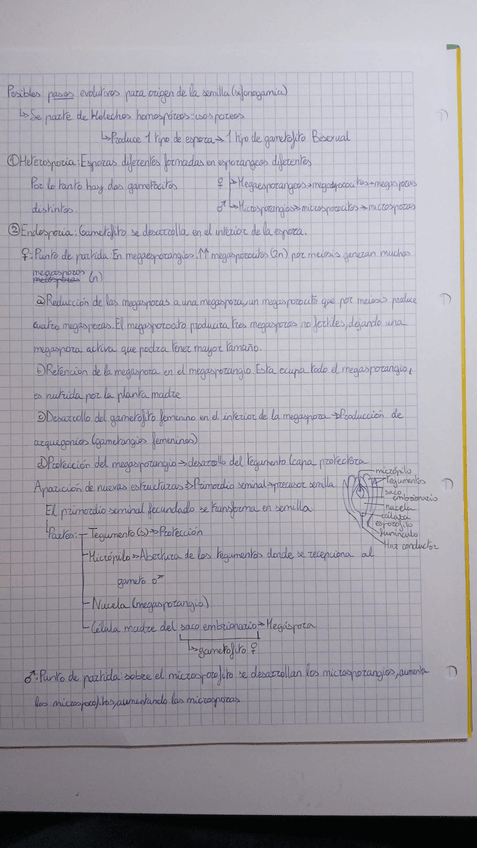 Posibles pasos evolutivos para origen de la semilla (sifonogamia)
↳ Se parte de Helechos homospóreos: isosporeos
↳ Produce 1 tipo de espora → 1 tipo de gametofito Bisexual
① Heterosporia: Esporas diferentes formadas en esporangeos diferentes
Por lo tanto hay dos gametocitos ♀ ↳ Megaesporangeos → megasporocitos → megasporas
distintos. ♂ ↳ Microsporangios → microsporocitos → microsporas
② Endosporia: Gametofito se desarrolla en el interior de la espora.
♀: Punto de partida: En megaesporangios. ↑↑ megasporocitos (2n) por meiosis generan muchas
megasporas (n)
a) Reducción de las megasporas a una megaspora, un megasporocito que por meiosis produce
cuatro megasporas. El megasporocito producirá tres megasporas no fértiles, dejando una
megaspora activa que podrá tener mayor tamaño.
b) Retención de la megaspora en el megasporangio. Esta ocupa todo el megasporangio,
es nutrida por la planta madre
c) Desarrollo del gametofito femenino en el interior de la megaspora → Producción de
arquegonios (gametangios femeninos)
d) Protección del megasporangio → desarrollo del tegumento (capa protectora
Aparición de nuevas estructuras → Primordio seminal → precursor semilla
El primordio seminal fecundado se transforma en semilla
micrópilo
Tegumentos
saco embrionario
nucela
calaza
funículo
Haz conductor
Partes: Tegumento (s) → Protección
Micrópilo → Abertura de los tegumentos donde se recepciona al
gameto ♂
Nucela (megasporangio)
Célula madre del saco embrionario → Megáspora
↳ gametofito ♀
♂: Punto de partida sobre el microsporofito se desarrollan los microsporangios, aumenta
los microsporofitos, aumentando las microsporas